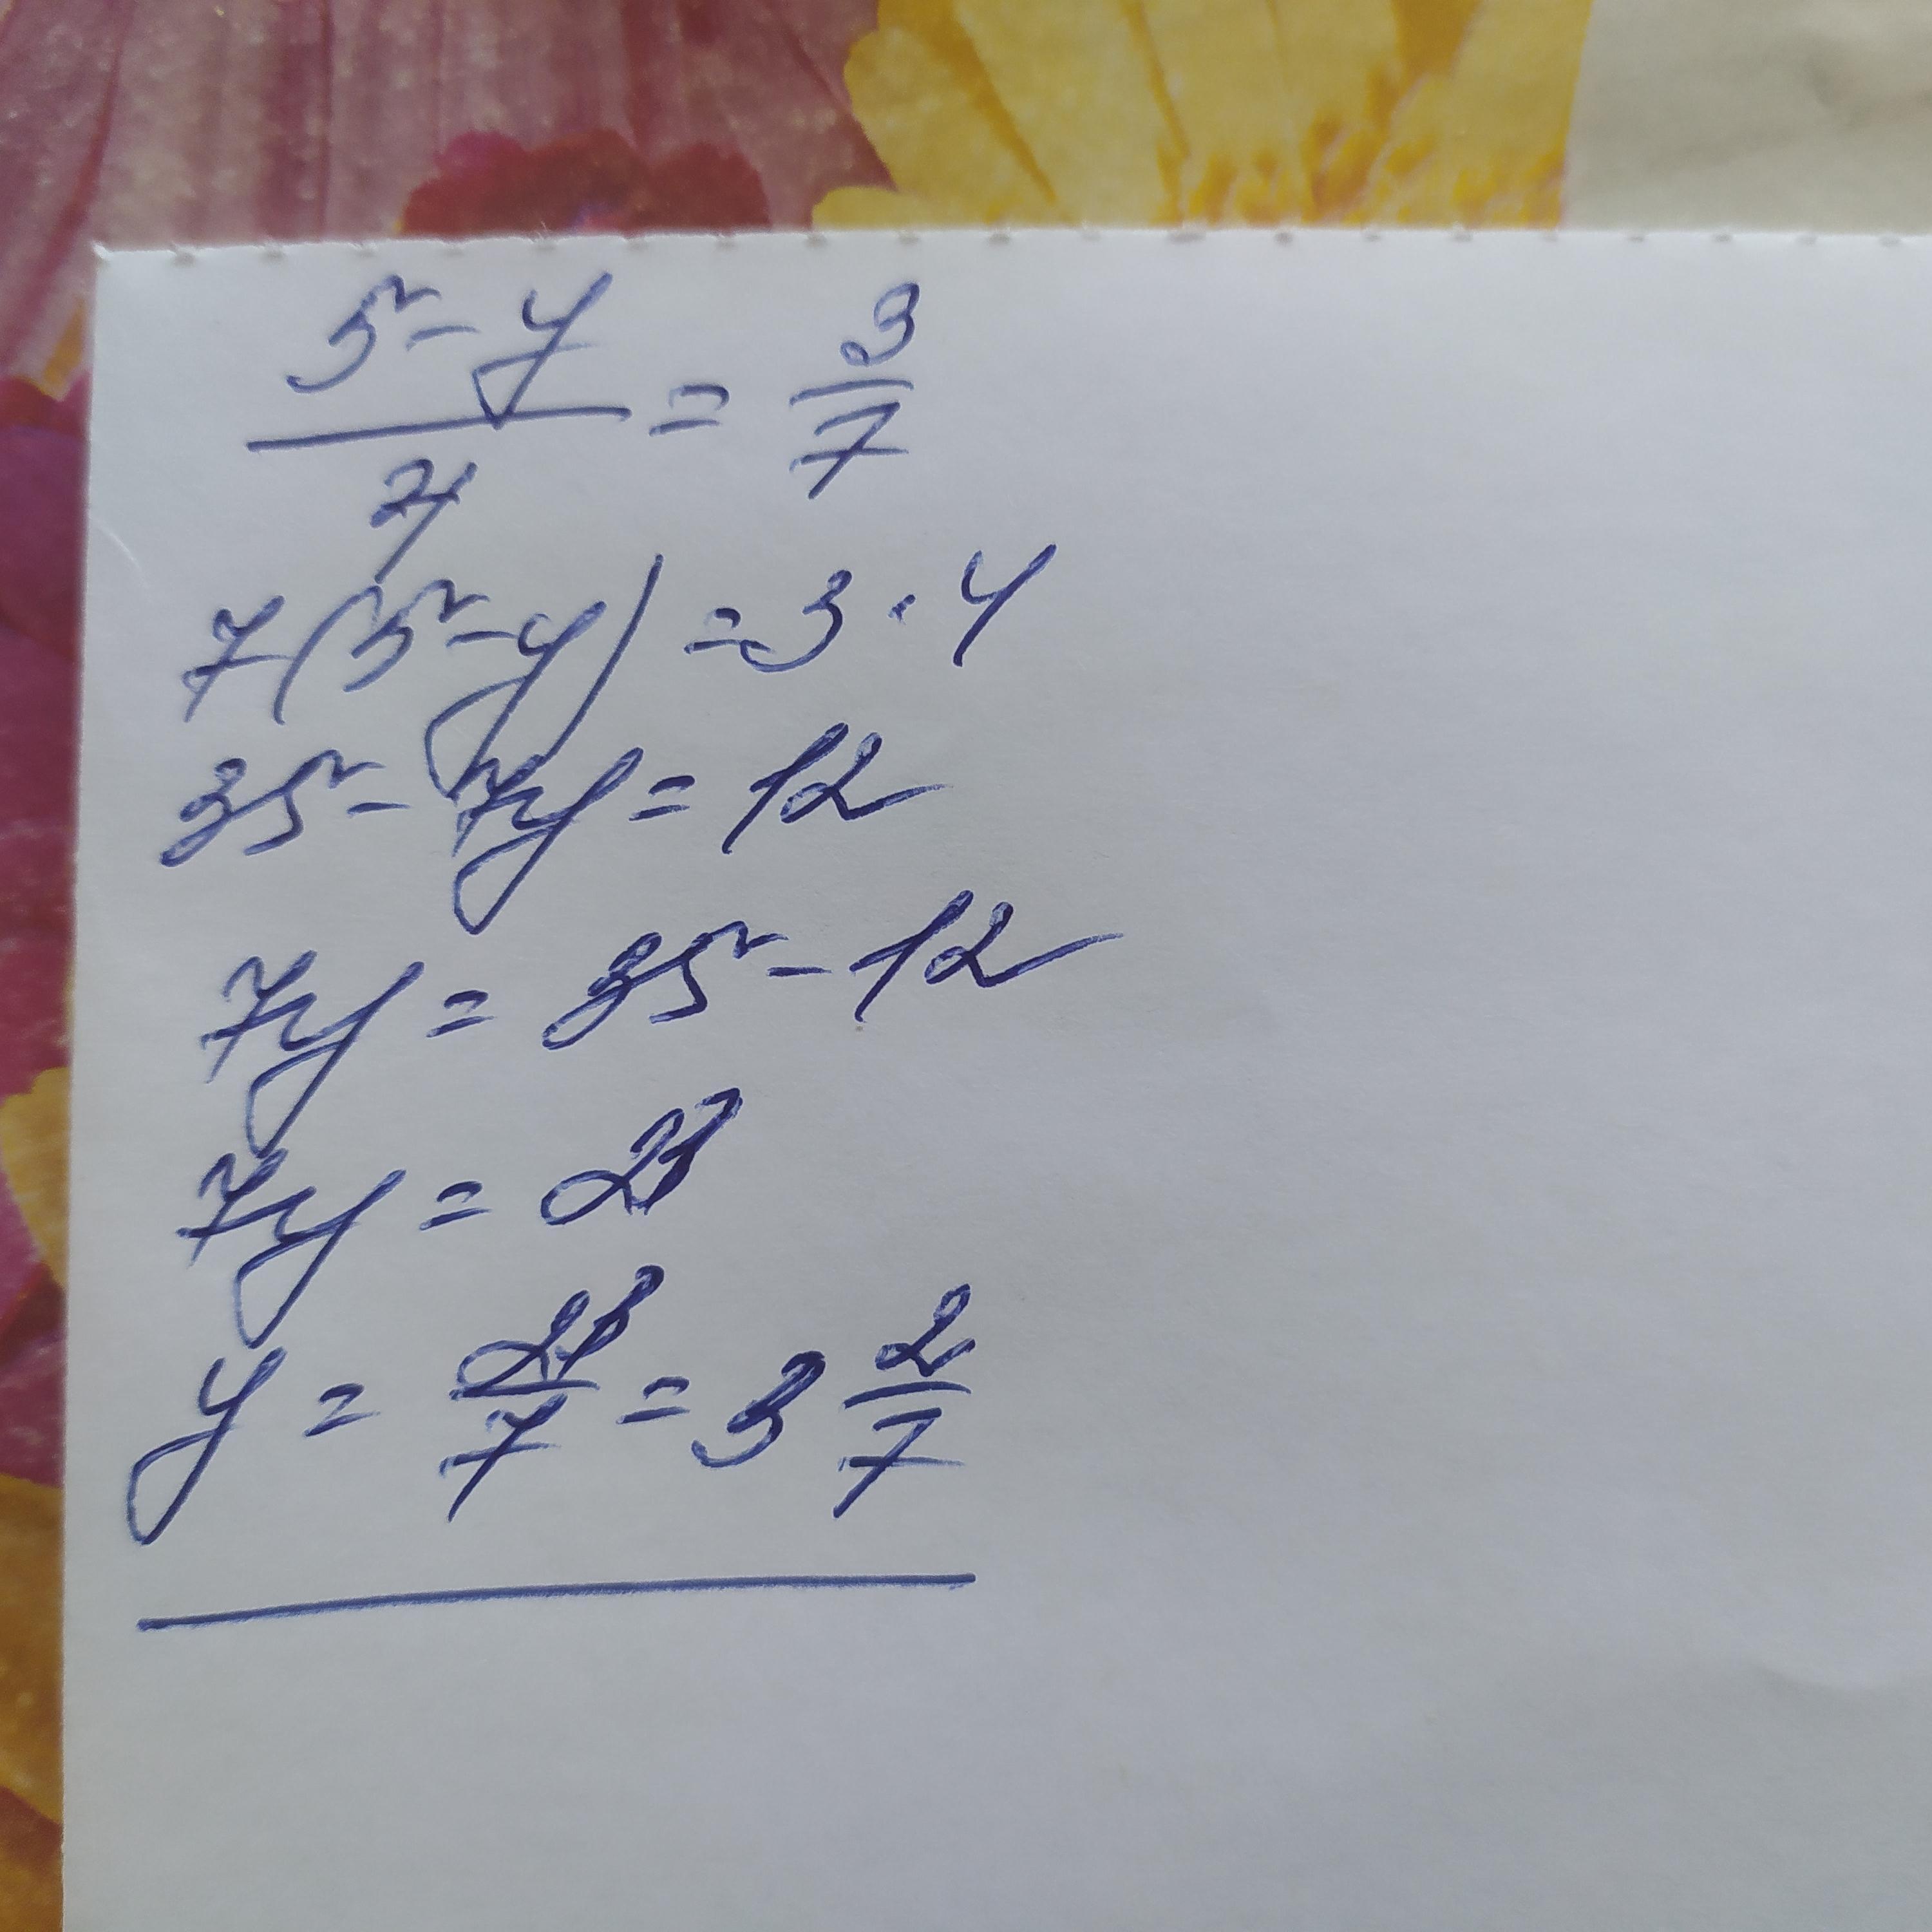 (5 - y)/4 = 3/7
7(5 - y) = 3 · 4
35 - 7y = 12
7y = 35 - 12
7y = 23
y = 23/7 = 3 2/7